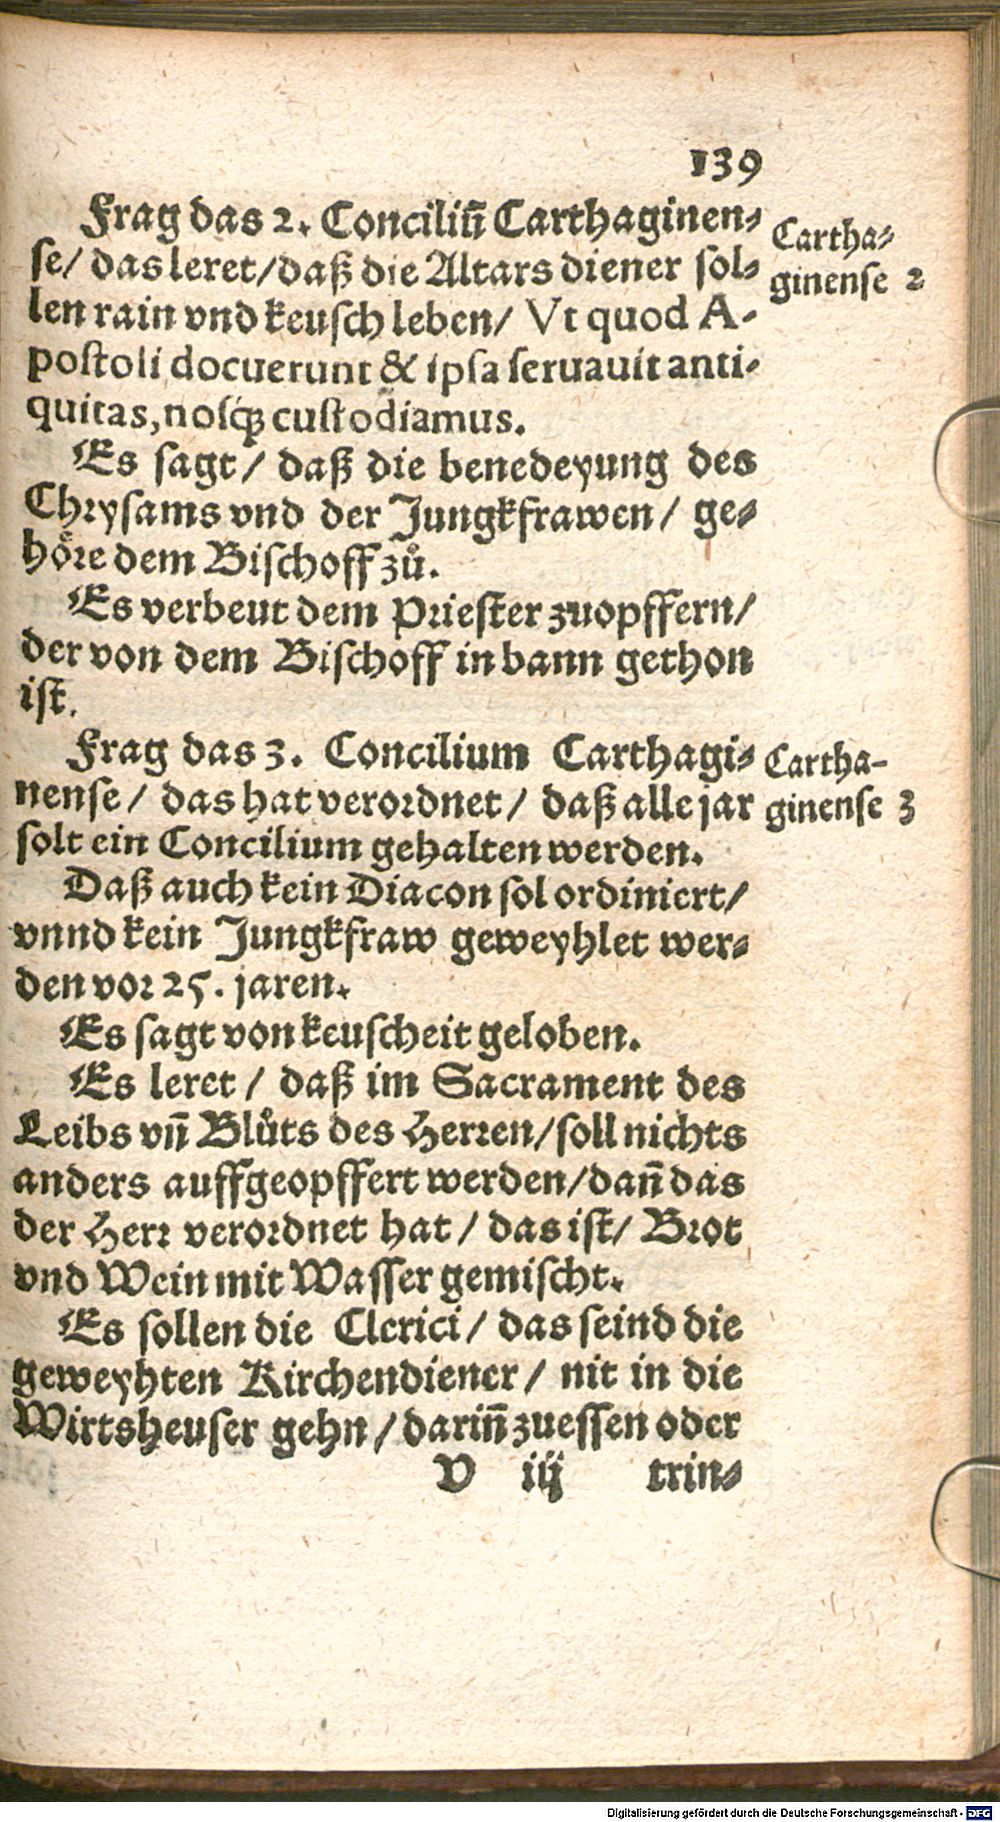 139
Frag das 2. Conciliũ Carthaginen⸗
se/ das leret/daß die Altars diener sol⸗
len rain vnd keusch leben/ Vt quod A-
postoli docuerunt & ipsa seruauit anti-
quitas, nosq́; custodiamus.
Cartha⸗
ginense 2
Es sagt/ daß die benedeyung des
Chrysams vnd der Jungkfrawen/ ge⸗
hoͤre dem Bischoff zů.
Es verbeut dem Priester zuopffern/
der von dem Bischoff in bann gethon
ist.
Frag das 3. Concilium Carthagi⸗
nense/ das hat verordnet/ daß alle jar
solt ein Concilium gehalten werden.
Cartha-
ginense 3
Daß auch kein Diacon sol ordiniert/
vnnd kein Jungkfraw geweyhlet wer⸗
den vor 25. jaren.
Es sagt von keuscheit geloben.
Es leret/ daß im Sacrament des
Leibs vñ Blůts des Herren/soll nichts
anders auffgeopffert werden/dañ das
der Herr verordnet hat/ das ist/ Brot
vnd Wein mit Wasser gemischt.
Es sollen die Clerici/ das seind die
geweyhten Kirchendiener/ nit in die
Wirtsheuser gehn/darin̄ zuessen oder
V iij trin⸗
Digitalisierung gefördert durch die Deutsche Forschungsgemeinschaft - DFG